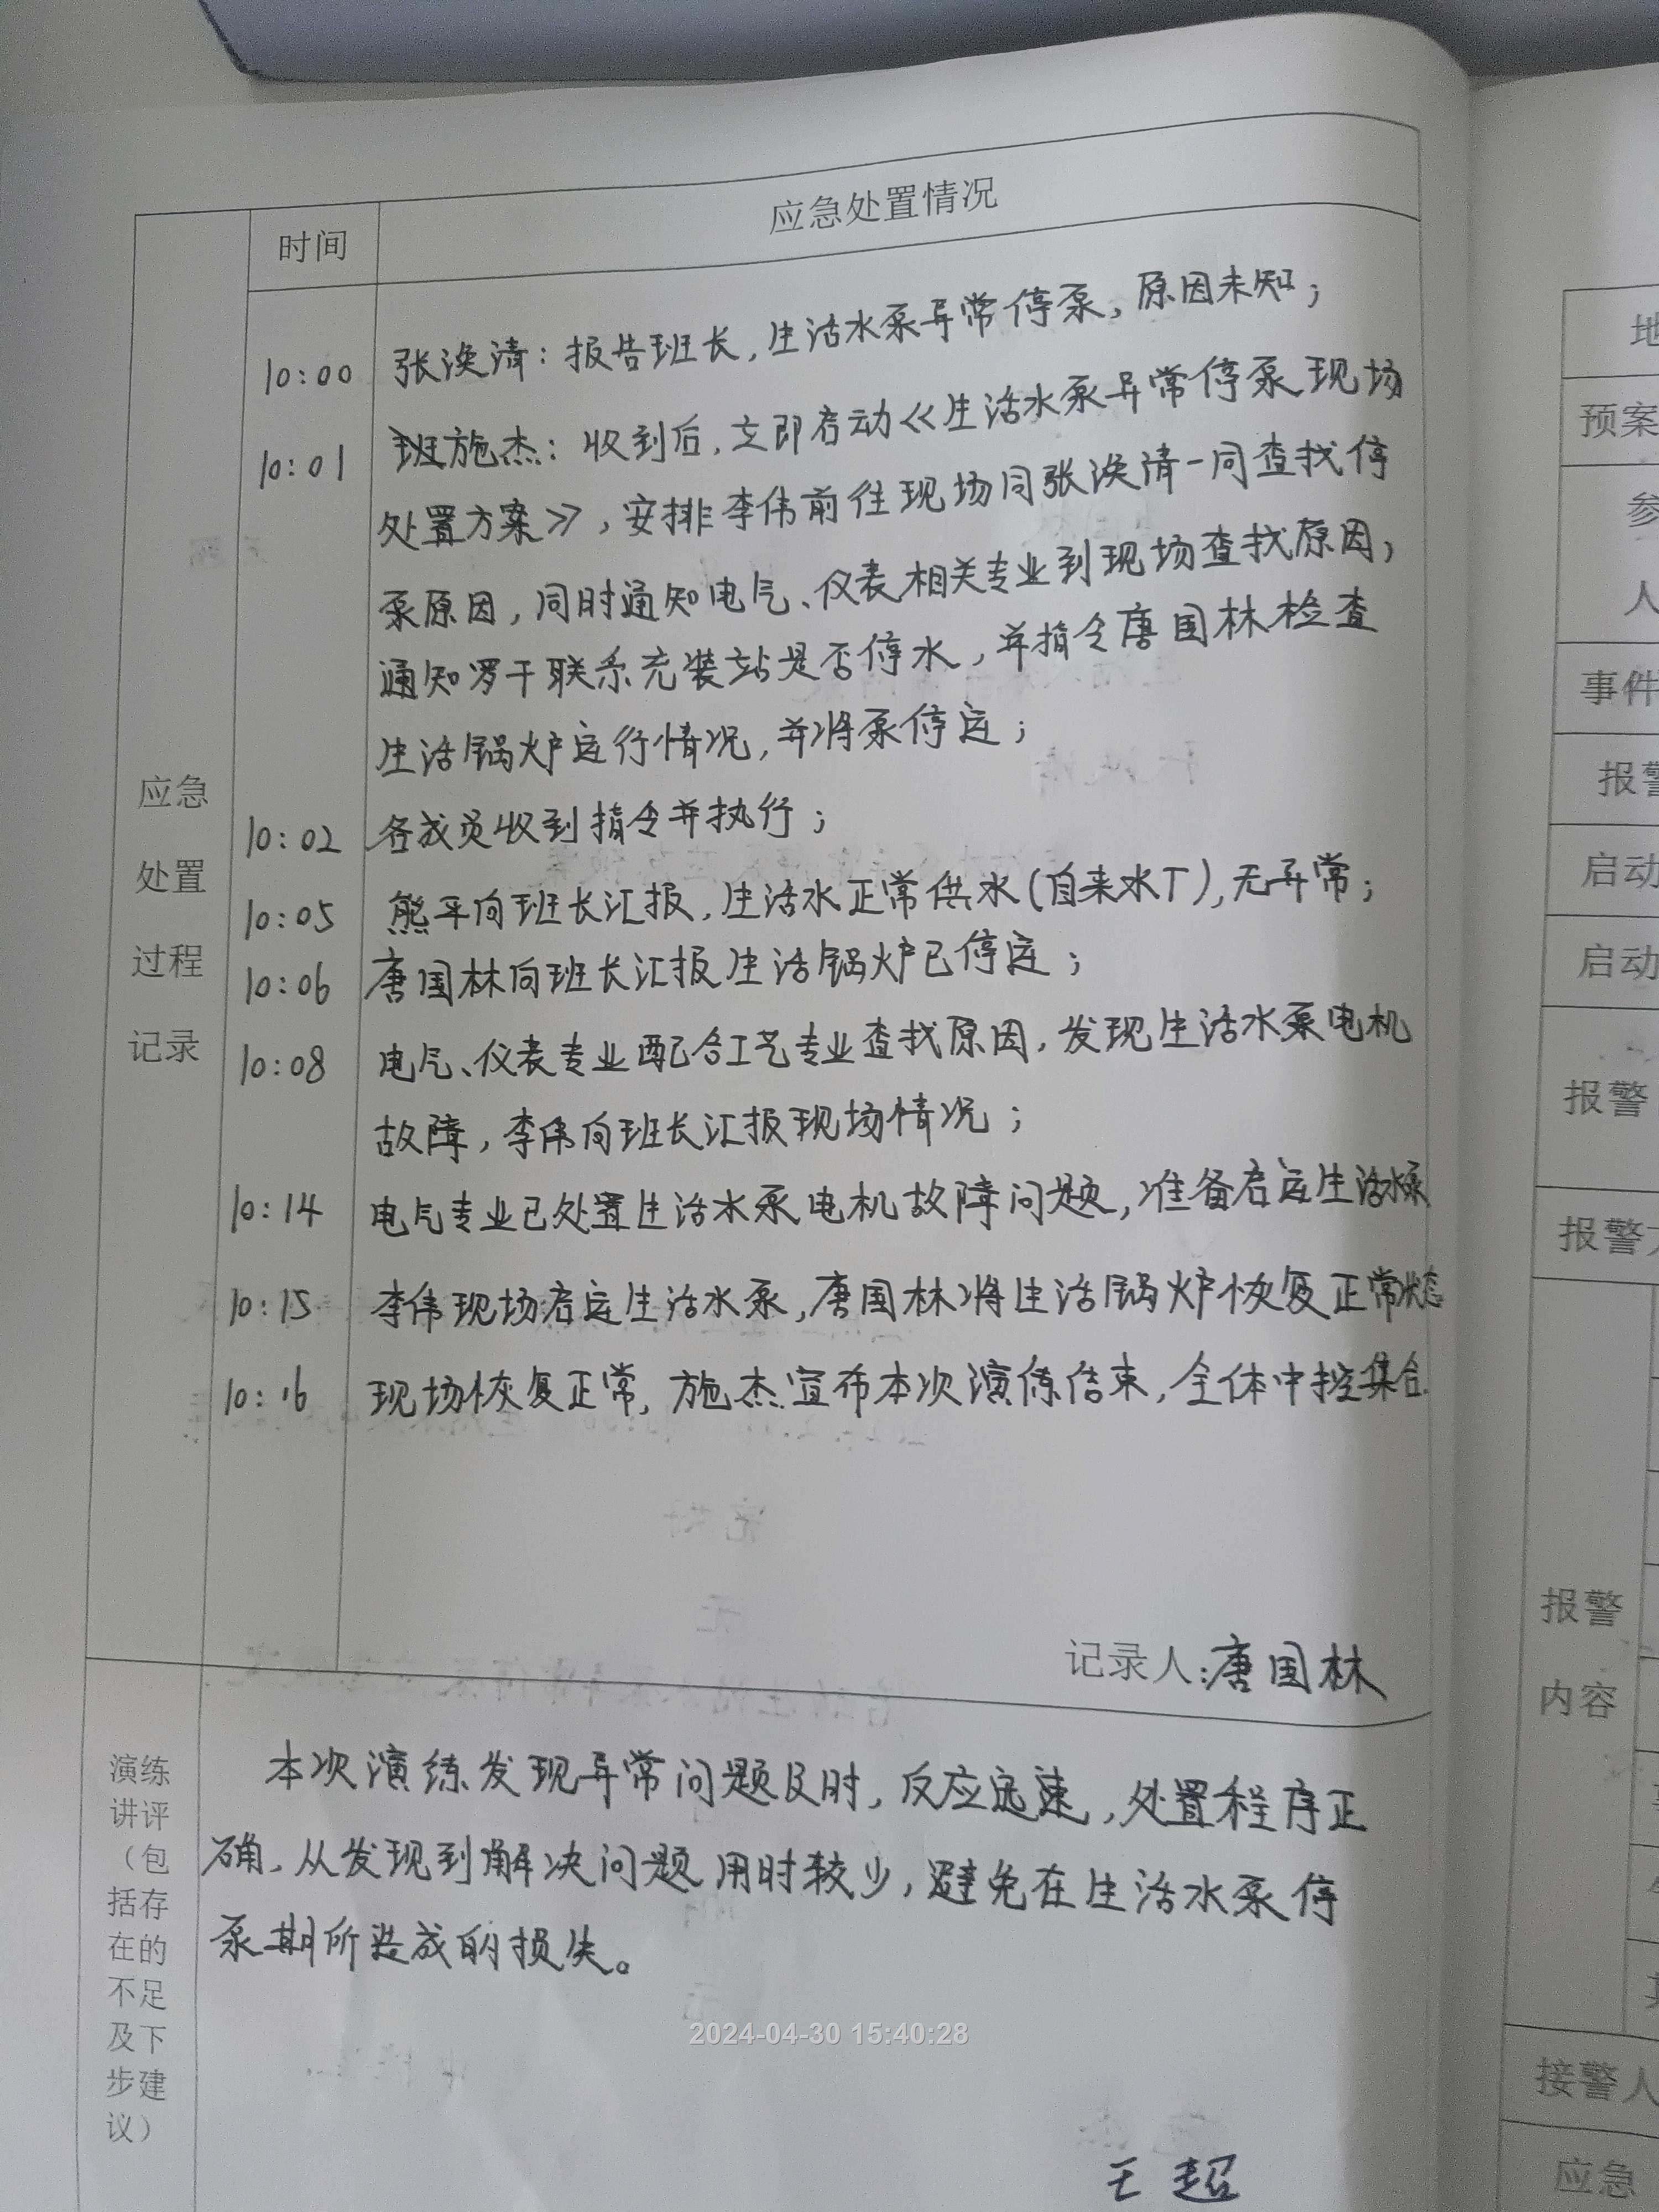 时间
应急处置情况
10:00
张涣清：报告班长，生活水泵异常停泵，原因未知；
10:01
施杰：收到后，立即启动《生活水泵异常停泵现场
处置方案》，安排李伟前往现场同张涣清一同查找停
泵原因，同时通知电气、仪表相关专业到现场查找原因，
通知罗干联系充装站是否停水，并指令唐国林检查
生活锅炉运行情况，并将泵停运；
10:02
各成员收到指令并执行；
10:05
熊平向班长汇报，生活水正常供水(自来水厂)，无异常；
10:06
唐国林向班长汇报生活锅炉已停运；
10:08
电气、仪表专业配合工艺专业查找原因，发现生活水泵电机
故障，李伟向班长汇报现场情况；
10:14
电气专业已处置生活水泵电机故障问题，准备启运生活水泵
10:15
李伟现场启运生活水泵，唐国林将生活锅炉恢复正常状态
10:16
现场恢复正常，施杰宣布本次演练结束，全体中控集合.
应急
处置
过程
记录
记录人：唐国林
演练
讲评
（包
括存
在的
不足
及下
步建
议）
本次演练发现异常问题及时，反应迅速，处置程序正
确，从发现到解决问题用时较少，避免在生活水泵停
泵期所造成的损失。
2024-04-30 15:40:28
王超
地
预案
参
人
事件
报警
启动
启动
报警
报警方
报警
内容
接警人
应急